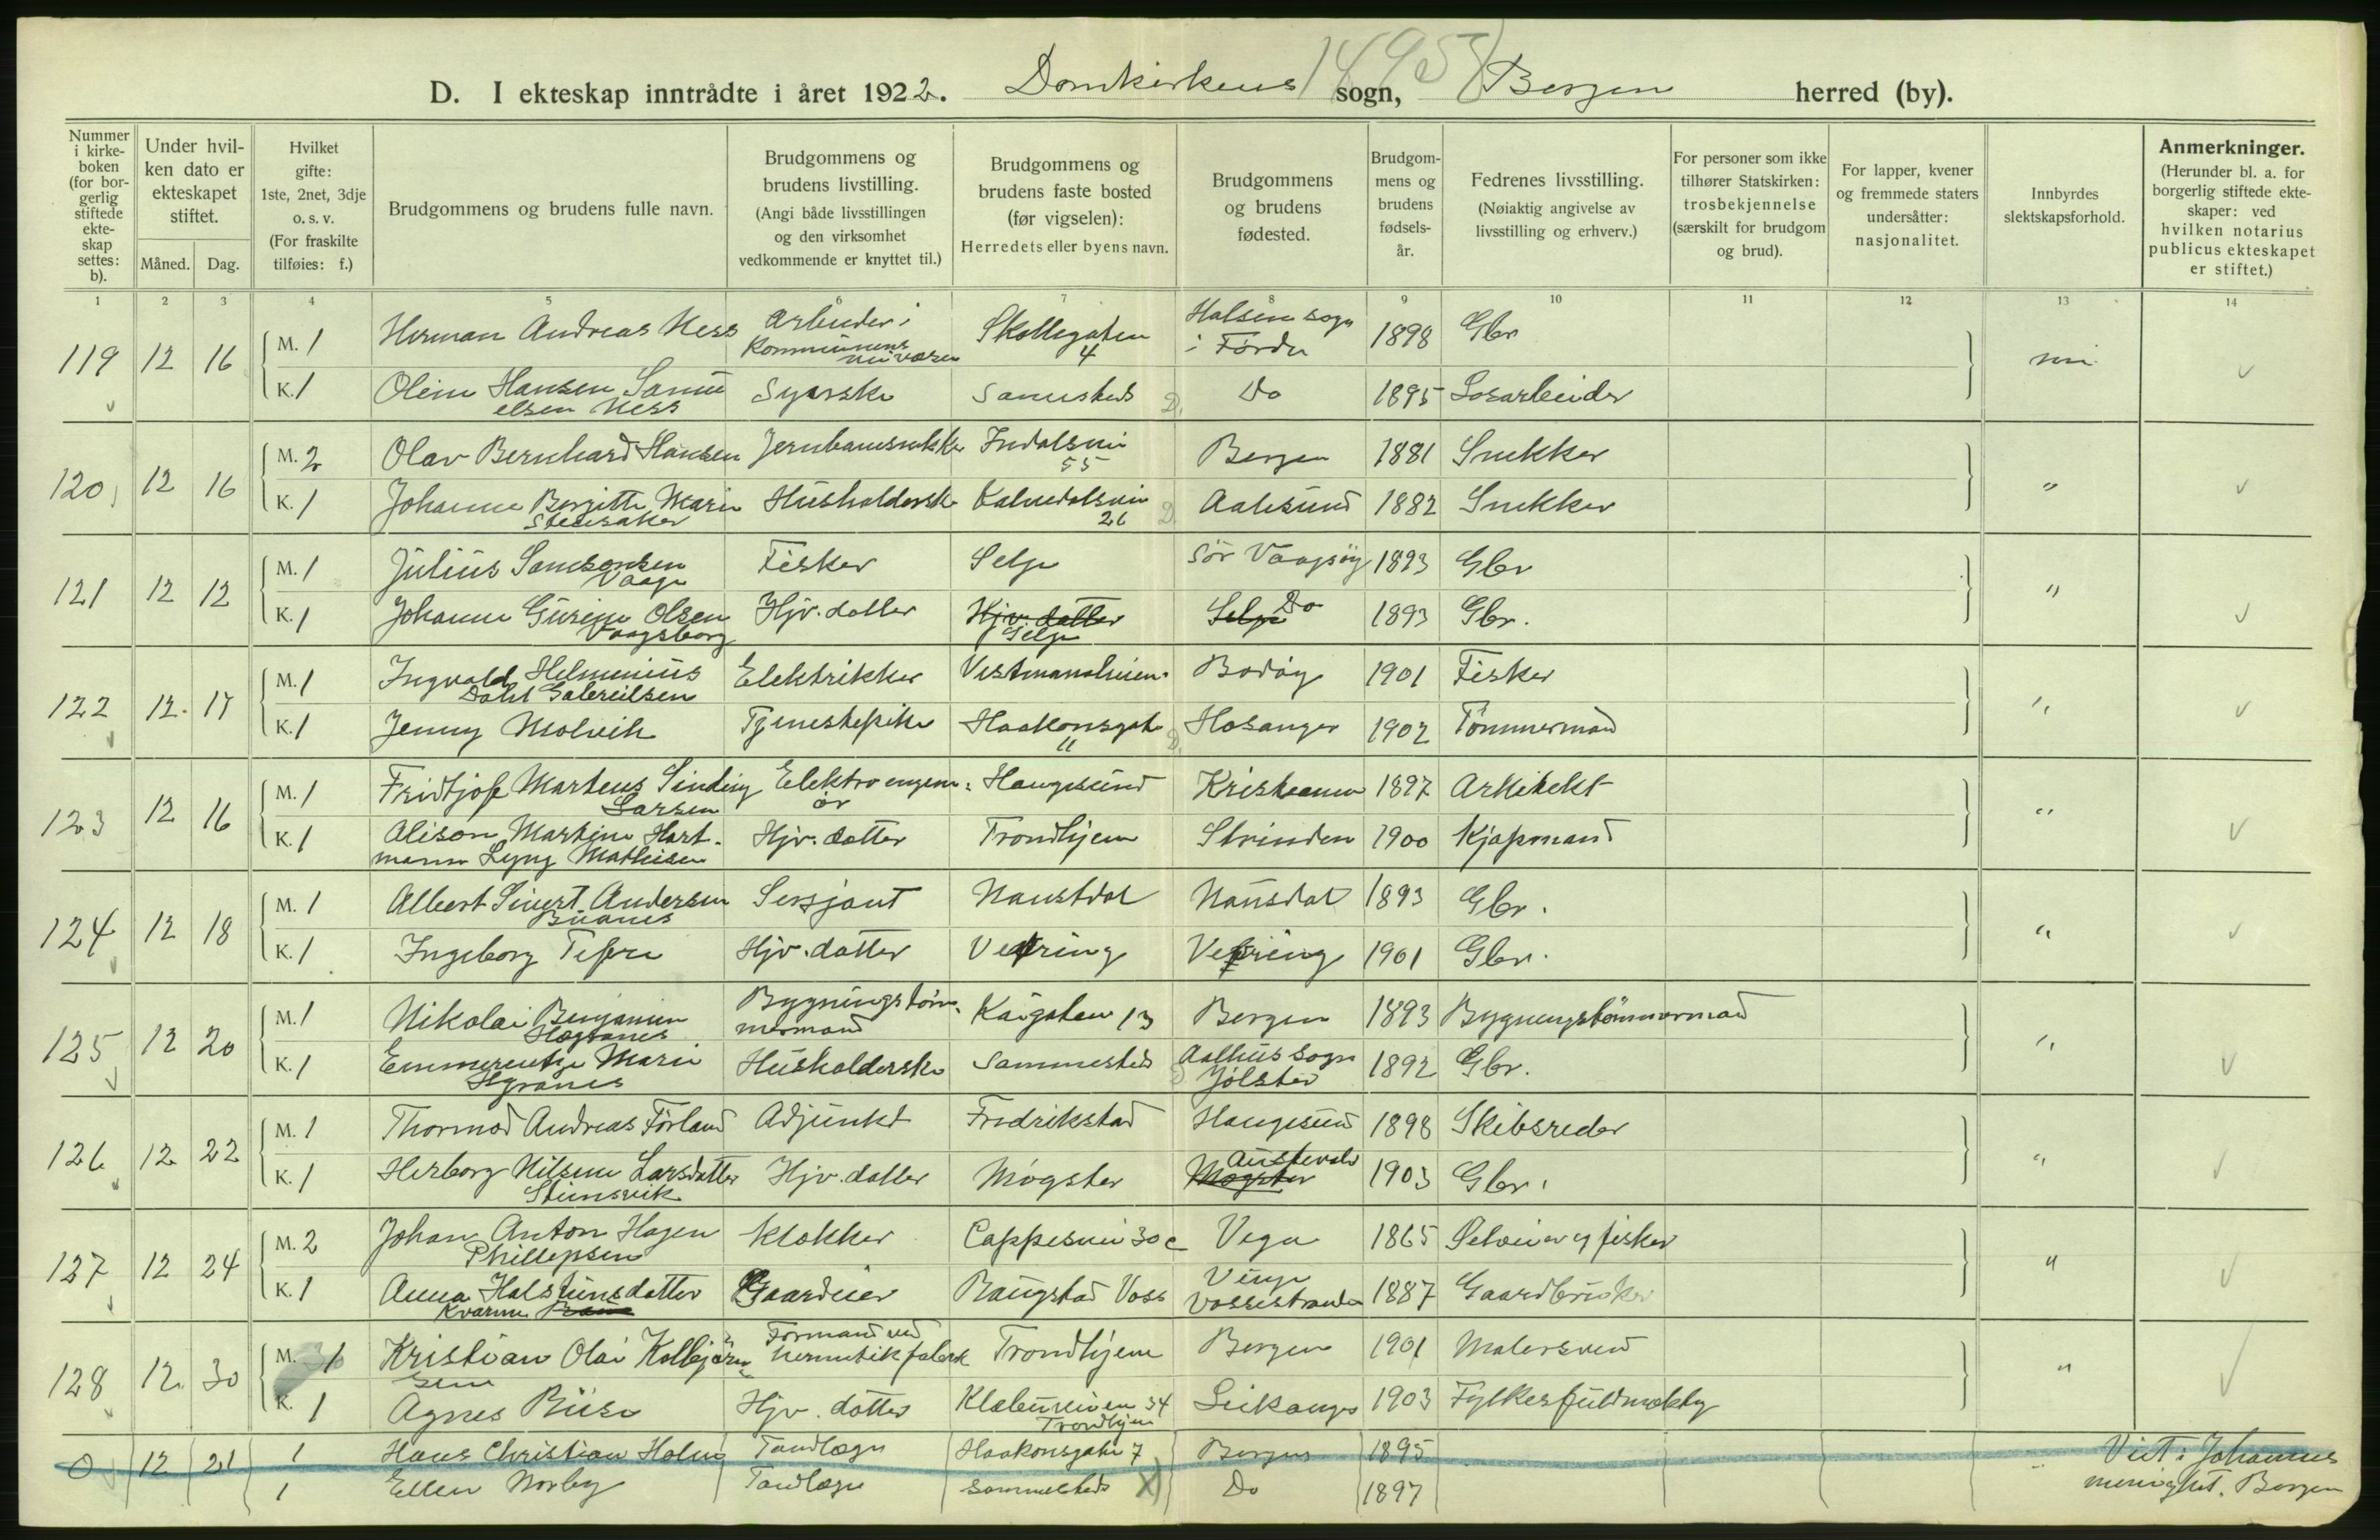 1495
D. I ekteskap inntrådte i året 1922. Domkirkens sogn, Bergen herred (by).
Nummer i kirkeboken (for borgerlig stiftede ekteskap settes: b).
Under hvilken dato er ekteskapet stiftet.
Måned. Dag.
Hvilket gifte: 1ste, 2net, 3dje o. s. v. (For fraskilte tilføies: f.)
Brudgommens og brudens fulle navn.
Brudgommens og brudens livstilling. (Angi både livsstillingen og den virksomhet vedkommende er knyttet til.)
Brudgommens og brudens faste bosted (før vigselen): Herredets eller byens navn.
Brudgommens og brudens fødested.
Brudgommens og brudens fødselsår.
Fedrenes livsstilling. (Nøiaktig angivelse av livsstilling og erhverv.)
For personer som ikke tilhører Statskirken: trosbekjennelse (særskilt for brudgom og brud).
For lapper, kvener og fremmede staters undersåtter: nasjonalitet.
Innbyrdes slektskapsforhold.
Anmerkninger. (Herunder bl. a. for borgerlig stiftede ekteskaper: ved hvilken notarius publicus ekteskapet er stiftet.)
1 2 3 4 5 6 7 8 9 10 11 12 13 14
119 12 16 M. 1 Herman Andreas Ness Arbeider i Kommunens Skottegaten 4 Halsen sogn i Førde 1898 Gbr nei
K. 1 Oline Hansen Samuelsen Ness Syerske Sammesteds D. Do 1895 Løsarbeider
120 12 16 M. 2 Olav Bernhard Hansen Jernbanesnekker Indalsvei 55 Bergen 1881 Snekker "
K. 1 Johanne Bergitte Marie Stensaker Husholderske Kalvedalsvei 26 D. Aalesund 1882 Snekker
121 12 12 M. 1 Julius Samsonsen Vaage Fisker Selje Sør Vaagsøy 1893 Gbr "
K. 1 Johanne Gurine Olsen Vaagsborg Hjv. datter Hjv. datter Selje Selje Do 1893 Gbr.
122 12 17 M. 1 Ingvald Helminius Dahl Gabrielsen Elektrikker Bodøy 1901 Fisker "
K. 1 Jenny Molvik Tjenestepike Haakonsgate 11 D. Hosanger 1902 Tømmermand
123 12 16 M. 1 Fridtjof Martens Sinding Larsen Elektroengeniør Haugesund Kristiania 1897 Arkitekt "
K. 1 Alison Martine Hartmann Lyng Mathisen Hjv. datter Trondhjem Strinden 1900 Kjøpmand
124 12 18 M. 1 Albert Sivert Andersen Buanes Sersjant Naustdal Nausdal 1893 Gbr. "
K. 1 Ingeborg Tefre Hjv. datter Vevring Vevring 1901 Gbr.
125 12 20 M. 1 Nikolai Benjamin Bygningstømmermand Kaigaten 13 Bergen 1893 Bygningstømmermand "
K. 1 Emmerentse Marie Husholderske Sammesteds D Aalhus sogn Jølster 1892 Gbr.
126 12 22 M. 1 Thormod Andreas Førland Adjunkt Fredrikstad Haugesund 1898 Skibsreder "
K. 1 Herborg Nilsine Larsdatter Stensvik Hjv. datter Møgster Møgster Austevold 1903 Gbr.
127 12 24 M. 2 Johan Anton Hagen Phillepsen Klokker Cappesvei 30c Vega 1865 Selveier og fisker "
K. 1 Anna Halstensdatter Kvarme Gaardeier Raugstad Voss Vinje Vossestranden 1887 Gaardbruker
128 12 30 M. 1 Kristian Olai Kolbjørnsen Formand ved hermetikfabrik Trondhjem Bergen 1901 Malersvend "
K. 1 Agnes Hjv. datter Klæbuveien 34 Trondhjem Leikanger 1903 Fylkesfuldmektig
0 12 21 1 Hans Christian Holm Tandlæge Haakonsgate 7 Bergen 1895 Viet i Johannes
1 Ellen Norby Tandlæge Sammesteds X) Do 1897 menighet. Bergen